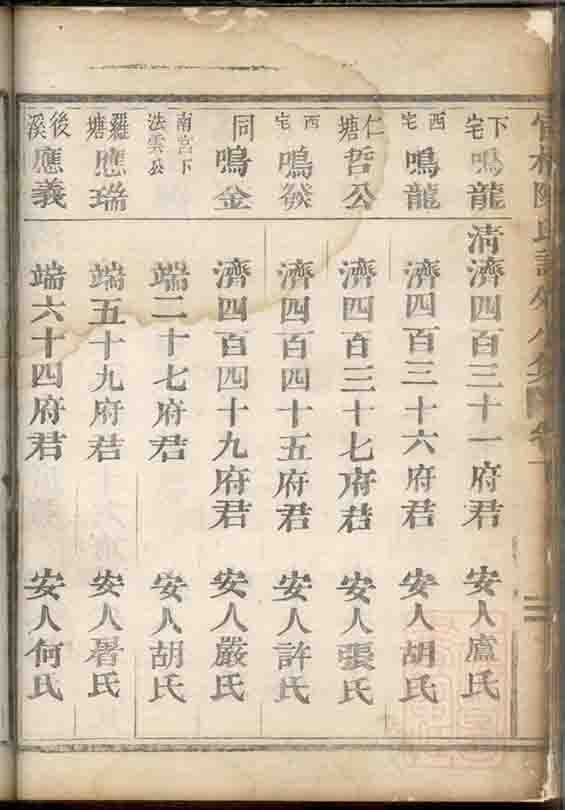 下宅 鳴龍 清濟四百三十一府君 安人盧氏
西宅 鳴龍 濟四百三十六府君 安人胡氏
仁塘 哲公 濟四百三十七府君 安人張氏
西宅 鳴 濟四百四十五府君 安人許氏
同 鳴金 濟四百四十九府君 安人嚴氏
南宮下法雲公 端二十七府君 安人胡氏
羅塘 應瑞 端五十九府君 安人屠氏
後溪 應義 端六十四府君 安人何氏